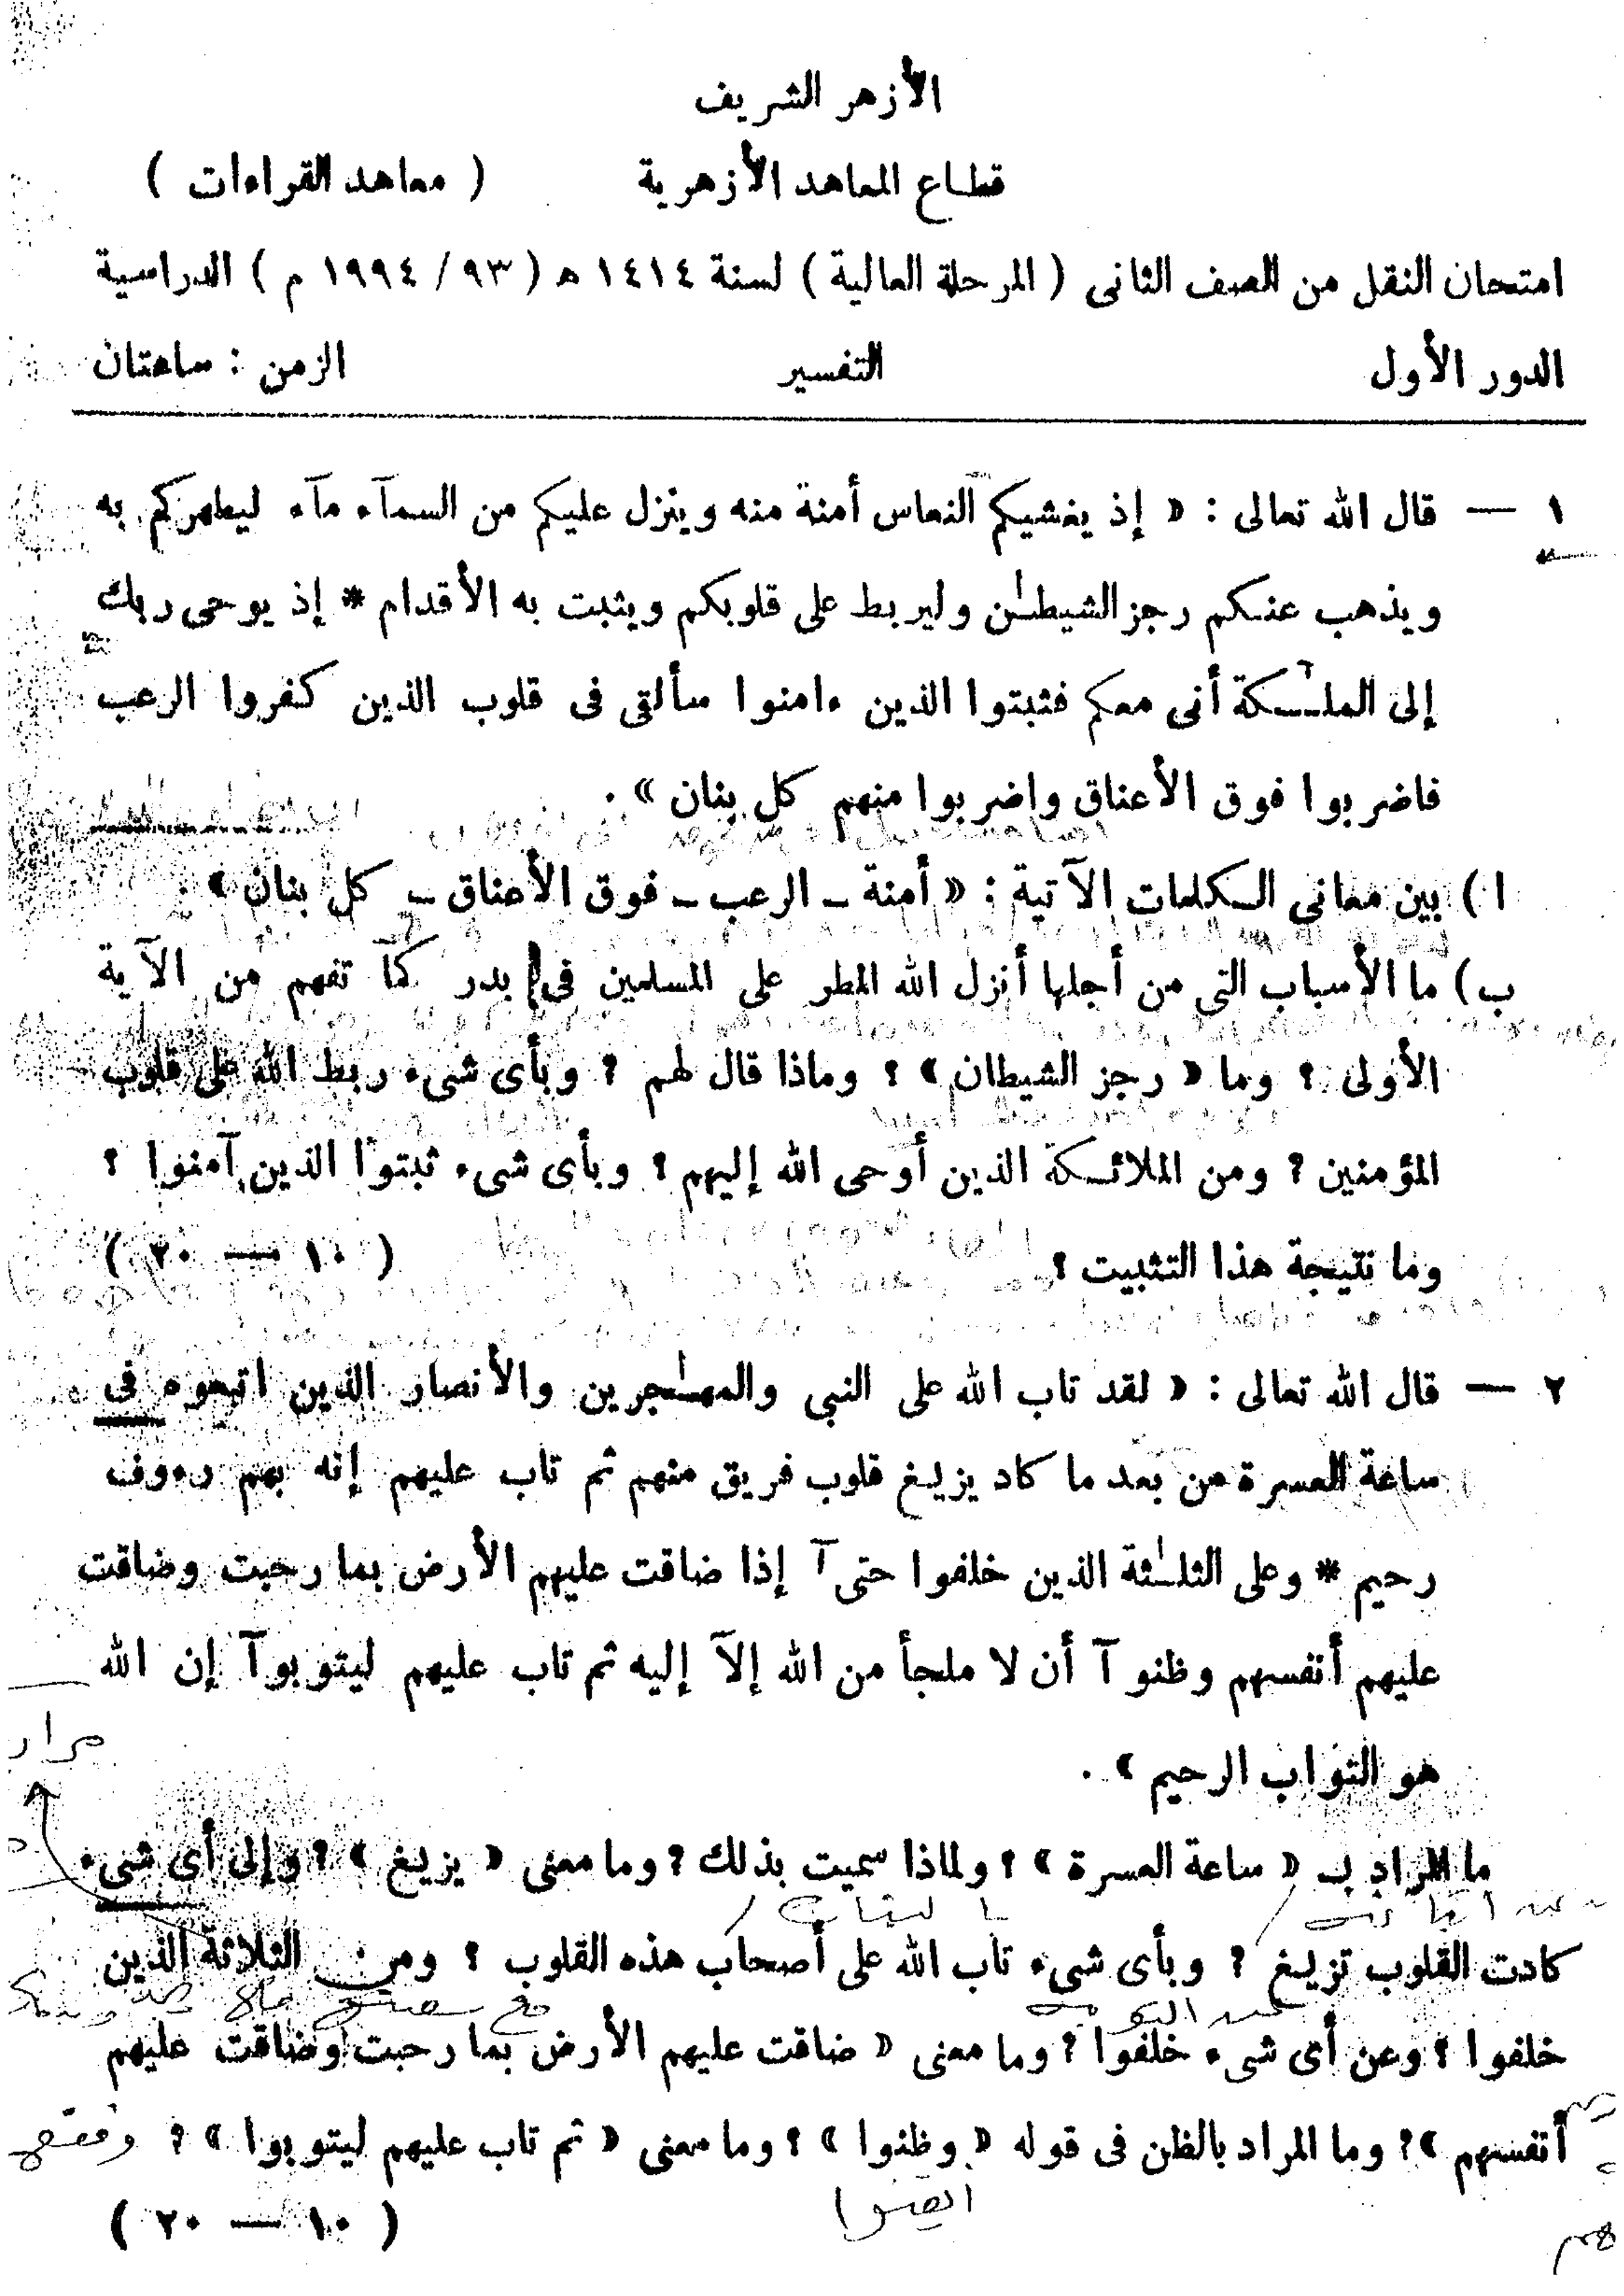 الأزهر الشريف
قطاع المعاهد الأزهرية ( معاهد القراءات )
امتحان النقل من الصف الثانى ( المرحلة العالية ) لسنة ١٤١٤ ه ( ٩٣ / ١٩٩٤ م ) الدراسية
الدور الأول التفسير الزمن : ساعتان
١ — قال الله تعالى : « إذ يغشيكم النعاس أمنة منه وينزل عليكم من السمآء مآء ليطهركم به
ويذهب عنكم رجز الشيطٰن وليربط على قلوبكم ويثبت به الأقدام * إذ يوحى ربك
إلى الملٰٓئكة أنى معكم فثبتوا الذين ءامنوا سألقى فى قلوب الذين كفروا الرعب
فاضربوا فوق الأعناق واضربوا منهم كل بنان » .
ا ) بين معانى الكلمات الآتية : « أمنة – الرعب – فوق الأعناق – كل بنان »
ب) ما الأسباب التى من أجلها أنزل الله المطر على المسلمين فى بدر كما تفهم من الآية
الأولى ؟ وما « رجز الشيطان » ؟ وماذا قال لهم ؟ وبأى شىء ربط الله على قلوب
المؤمنين ؟ ومن الملائكة الذين أوحى الله إليهم ؟ وبأى شىء ثبتوا الذين آمنوا ؟
وما نتيجة هذا التثبيت ؟ ( ١٠ — ٢٠ )
٢ — قال الله تعالى : « لقد تاب الله على النبى والمهٰجرين والأنصار الذين اتبعوه فى
ساعة العسرة من بعد ما كاد يزيغ قلوب فريق منهم ثم تاب عليهم إنه بهم رءوف
رحيم * وعلى الثلٰثة الذين خلفوا حتىٓ إذا ضاقت عليهم الأرض بما رحبت وضاقت
عليهم أنفسهم وظنوآ أن لا ملجأ من الله إلآ إليه ثم تاب عليهم ليتوبوآ إن الله
هو التواب الرحيم » .
مرار
ما المراد ب « ساعة العسرة » ؟ ولماذا سميت بذلك ؟ وما معنى « يزيغ » ؟ وإلى أى شىء
كادت القلوب تزيغ ؟ وبأى شىء تاب الله على أصحاب هذه القلوب ؟ ومن الثلاثة الذين
خلفوا ؟ وعن أى شىء خلفوا ؟ وما معنى « ضاقت عليهم الأرض بما رحبت وضاقت عليهم
أنفسهم » ؟ وما المراد بالظن فى قوله « وظنوا » ؟ وما معنى « ثم تاب عليهم ليتوبوا » ؟ وفقهم
أيقنوا
( ١٠ — ٢٠ )